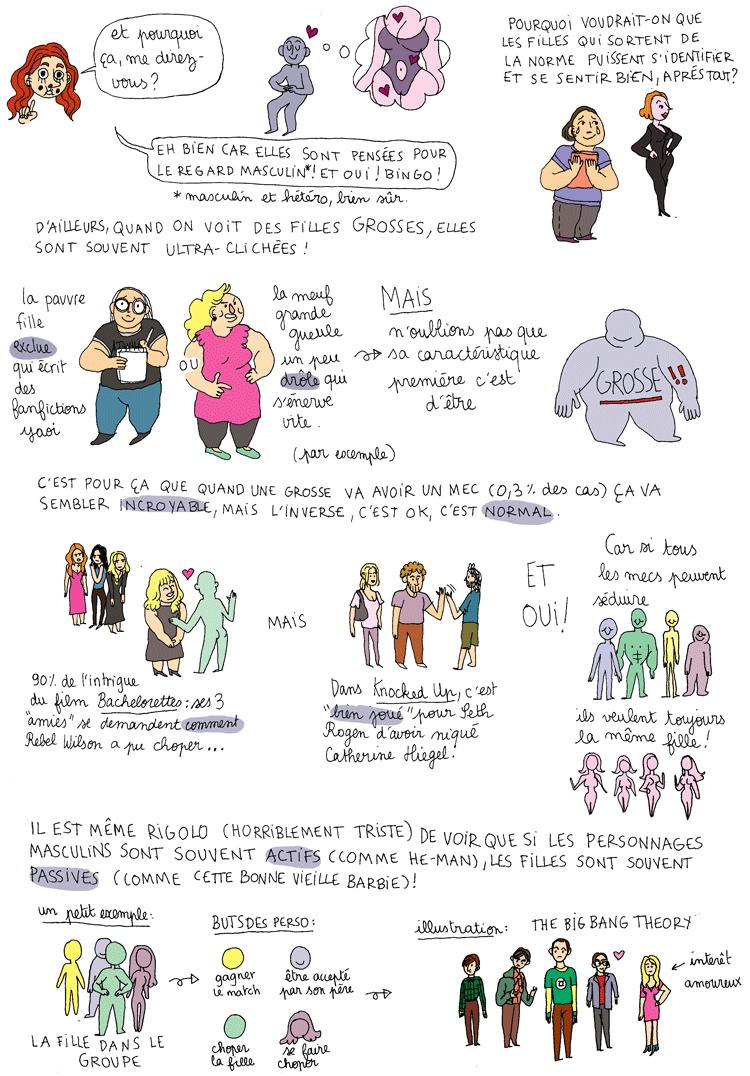 et pourquoi
ça, me direz-
vous?
POURQUOI VOUDRAIT-ON QUE
LES FILLES QUI SORTENT DE
LA NORME PUISSENT S'IDENTIFIER
ET SE SENTIR BIEN, APRÉS TOUT?
EH BIEN CAR ELLES SONT PENSÉES POUR
LE REGARD MASCULIN*! ET OUI! BINGO!
* masculin et hétéro, bien sûr.
D'AILLEURS, QUAND ON VOIT DES FILLES GROSSES, ELLES
SONT SOUVENT ULTRA-CLICHÉES!
la pauvre
fille
exclue
qui écrit
des
fanfictions
yaoi
OU
la meuf
grande
gueule
un peu
drôle qui
s'énerve
vite.
(par exemple)
MAIS
n'oublions pas que
sa caractéristique
première c'est
d'être
GROSSE!!
C'EST POUR ÇA QUE QUAND UNE GROSSE VA AVOIR UN MEC (0,3% des cas) ÇA VA
SEMBLER INCROYABLE, MAIS L'INVERSE, C'EST OK, C'EST NORMAL.
90% de l'intrigue
du film Bachelorettes: ses 3
"amies" se demandent comment
Rebel Wilson a pu choper...
MAIS
Dans Knocked Up, c'est
"bien joué" pour Seth
Rogen d'avoir niqué
Catherine Hiegel!
ET
OUI!
Car si tous
les mecs peuvent
séduire
ils veulent toujours
la même fille!
IL EST MÊME RIGOLO (HORRIBLEMENT TRISTE) DE VOIR QUE SI LES PERSONNAGES
MASCULINS SONT SOUVENT ACTIFS (COMME HE-MAN), LES FILLES SONT SOUVENT
PASSIVES (COMME CETTE BONNE VIEILLE BARBIE)!
un petit exemple:
LA FILLE DANS LE
GROUPE
BUTS DES PERSO:
gagner
le match
être accepté
par son père
choper
la fille
se faire
choper
illustration: THE BIG BANG THEORY
intérêt
amoureux